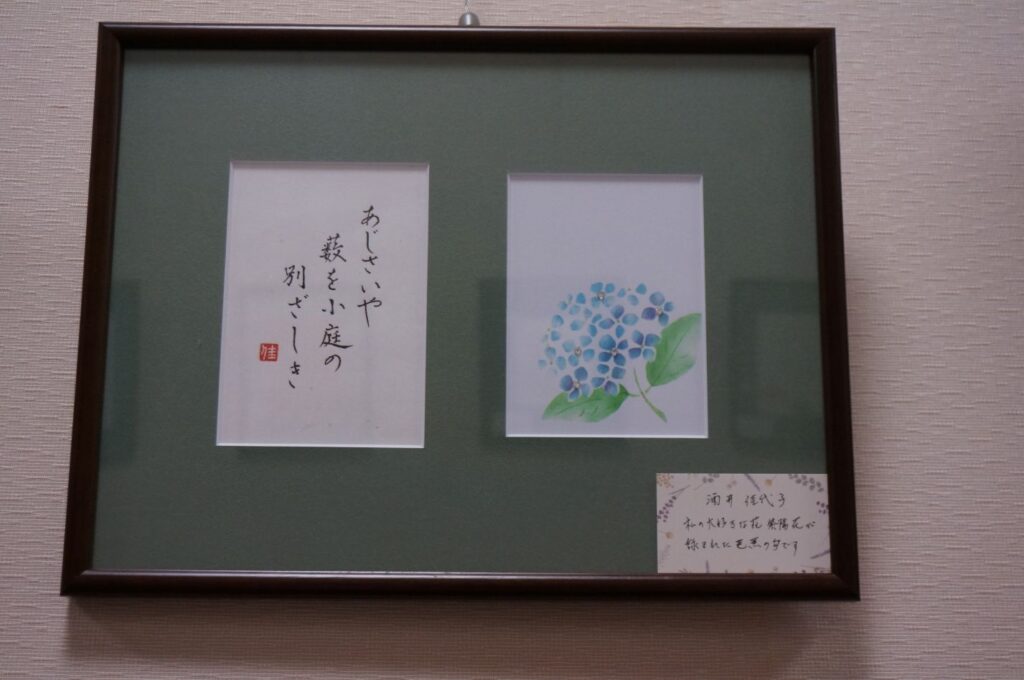 あじさいや
薮を小庭の
別ざしき
佳
酒井 佳代子
私の大好きな花 紫陽花が
詠まれた芭蕉の句です